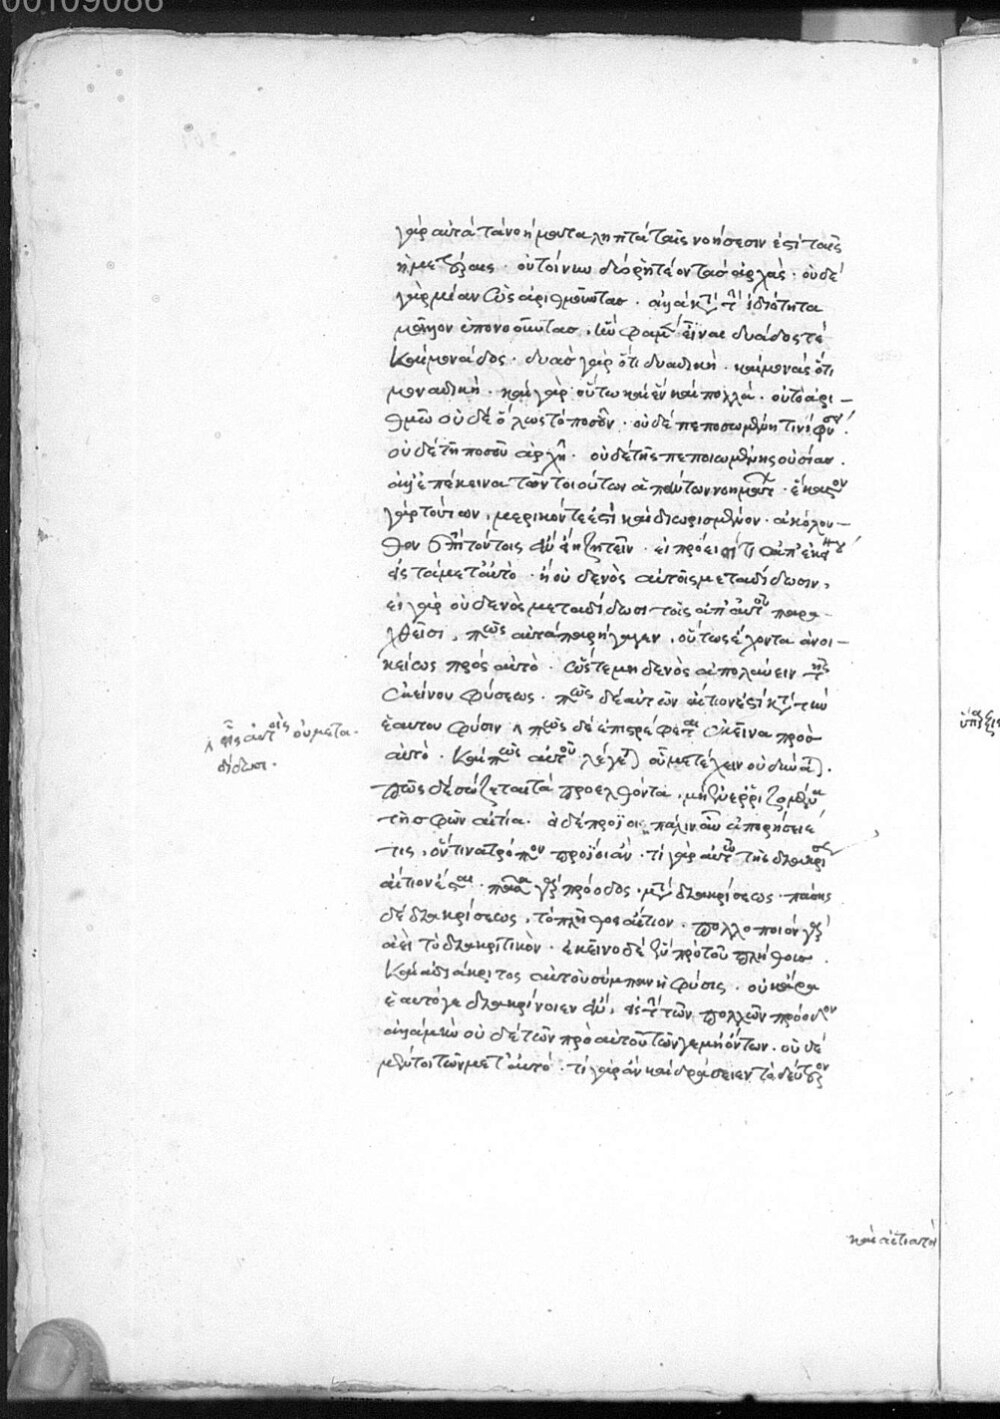 00109086
γὰρ αὐτὰ τὰ νοήματα ληπτὰ ταῖς νοήσεσιν ἐστὶ ταῖς
ἡμετέραις · οὐ τοίνυν διορητέον τὰς ἀρχάς · οὐδὲ
γὰρ μίαν ὡς ἀριθμοῦντας · ἀλλὰ κατὰ τὴν ἰδιότητα
μόνον ἐπονοοῦντας, ἣν φαμὲν εἶναι δυάδος τὲ
καὶ μονάδος · δυὰς γὰρ ὅτι δυαδικὴ · καὶ μονὰς ὅτι
μοναδική · καὶ γὰρ οὕτω καὶ ἓν καὶ πολλὰ · οὔτε ἀρι–
θμῶ οὐδὲ ὅλως τὸ ποσὸν · οὐδὲ πεποσωμένη τινὶ φύσει
οὐδὲ τῆ ποσοῦ ἀρχῆ · οὐδὲ τῆς πεποιωμένης οὐσίας ·
ἀλλ' ἐπέκεινα τῶν τοιούτων ἁπάντων νοημάτων · ἕκαστον
γὰρ τούτων, μερικόν τε ἐστὶ καὶ διωρισμένον · ἀκόλου–
θον δ' ἐπὶ τούτοις ἂν εἴη ζητεῖν · εἰ πρόεισί τι ἀπ' ἐκείνου
εἰς τὰ μετ' αὐτὸ · ἢ οὐδενὸς αὐτοῖς μεταδίδωσιν,
εἰ γὰρ οὐδενὸς μεταδίδωσι τοῖς ἀπ' αὐτοῦ παρα–
χθεῖσι, πῶς αὐτὰ παρήγαγεν, οὕτως ἔχοντα ἀνοι–
κείως πρὸς αὐτὸ · ὥστε μηδενὸς ἀπολαύειν τῆς
ἐκείνου φύσεως · πῶς δὲ αὐτῶν αἴτιον ἐστὶ κατὰ τὴν
ἑαυτοῦ φύσιν ٨ πῶς δὲ ἐπιστρέφεται ἐκεῖνα πρὸς
αὐτὸ · καὶ πῶς αὐτοῦ λέγεται οὗ μετέχειν οὐ δύναται ·
πῶς δὲ σώζεται τὰ προελθόντα, μὴ ἐνερριζομένα
τῆ σφῶν αἰτία · ἀδέπροϊοι πάλιν ἂν ἀπορήσειέ
τις, ὅντινα τρόπον προΐοι ἄν · τί γὰρ αὐτῶ τῆς διακρί
αἴτιον ἔσται · πᾶσα γὰρ πρόοδος · μετὰ διακρίσεως · πάσης
δὲ διακρίσεως, τὸ πλῆθος αἴτιον · πολλοποιὸν γὰρ
ἀεὶ τὸ διακριτικὸν · ἐκεῖνο δὲ ἦν πρὸ τοῦ πλήθους ·
καὶ ἀδιάκριτος αὐτοῦ σύμπαν ἡ φύσις · οὐκ ἄρα
ἑαυτό γε διακρίνοιεν ἄν, εἰς τὴν τῶν πολλῶν πρόοδον
ἀλλὰ μὴν οὐδὲ τῶν πρὸ αὐτοῦ τῶν γε μὴ ὄντων · οὐδὲ
μέντοι τῶν μετ' αὐτὸ · τί γὰρ ἂν καὶ δράσειεν τὸ δεύτερον
٨ εἰς αὐτοῖς οὐ μετα·
δίδωσι ·
ὕπαρξις
καὶ αἰτιατὰ